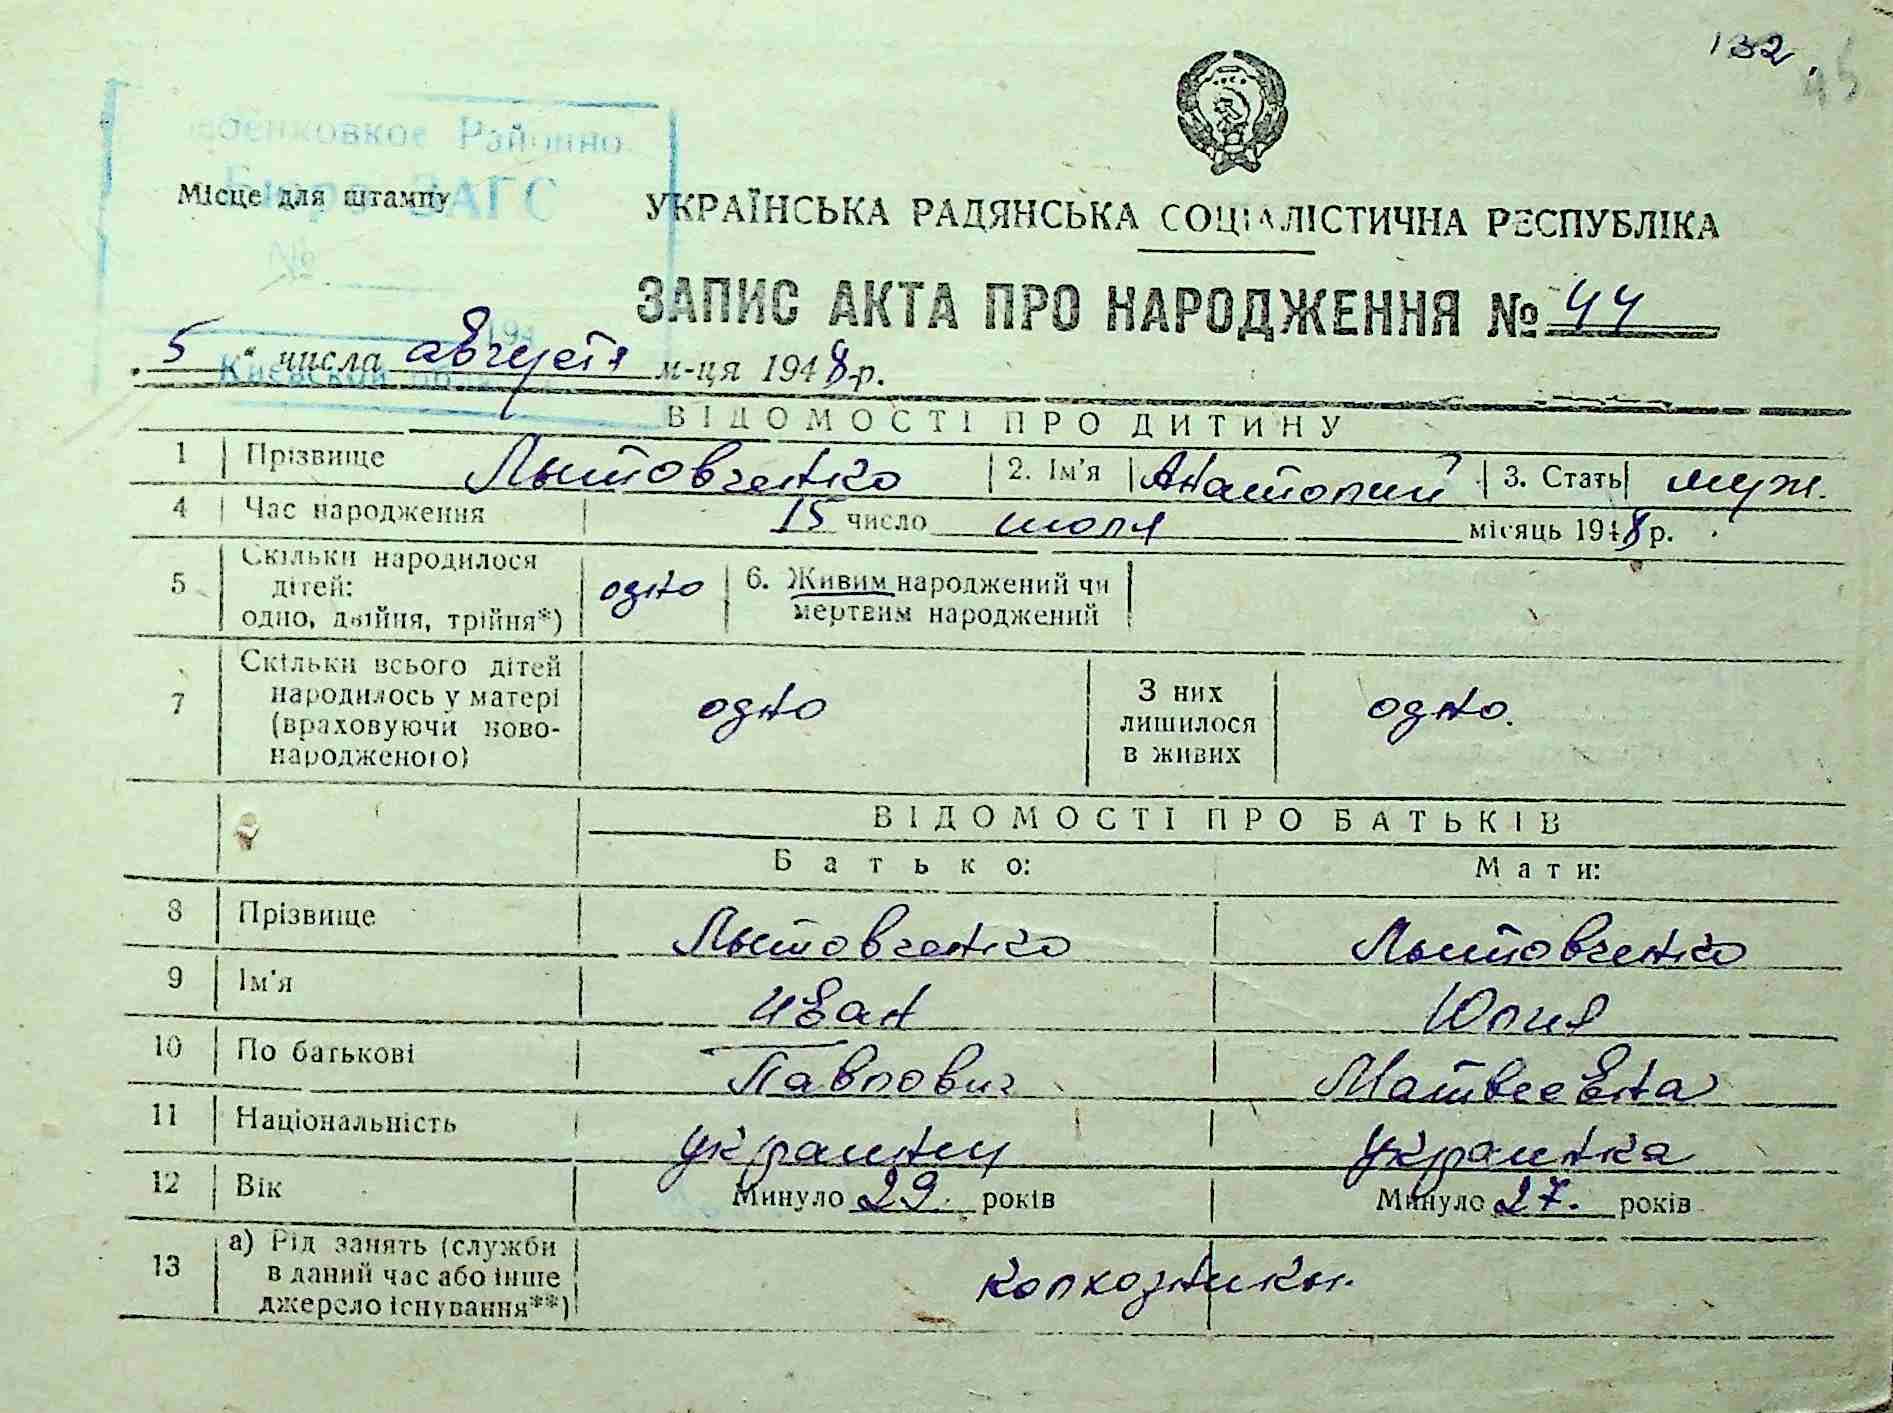 132.
45
Районно
Бюро ЗАГС
№
194
Киевской обл
Місце для штампу
УКРАЇНСЬКА РАДЯНСЬКА СОЦІАЛІСТИЧНА РЕСПУБЛІКА
ЗАПИС АКТА ПРО НАРОДЖЕННЯ № 44
5 " числа августа м-ця 1948 р.
ВІДОМОСТІ ПРО ДИТИНУ
1 Прізвище Лытовченко 2. Ім'я Анатолий 3. Стать муж.
4 Час народження 15 число июля місяць 1948 р.
5 Скільки народилося дітей: одно, двійня, трійня*) одно 6. Живим народжений чи мертвим народжений
7 Скільки всього дітей народилось у матері (враховуючи ново-народженого) одно З них лишилося в живих одно.
ВІДОМОСТІ ПРО БАТЬКІВ
Батько: Мати:
8 Прізвище Лытовченко Лытовченко
9 Ім'я Иван Юлия
10 По батькові Павлович Матвеевна
11 Національність украинец украинка
12 Вік Минуло 29. років Минуло 27. років
13 а) Рід занять (служби в даний час або інше джерело існування**) колхозники.